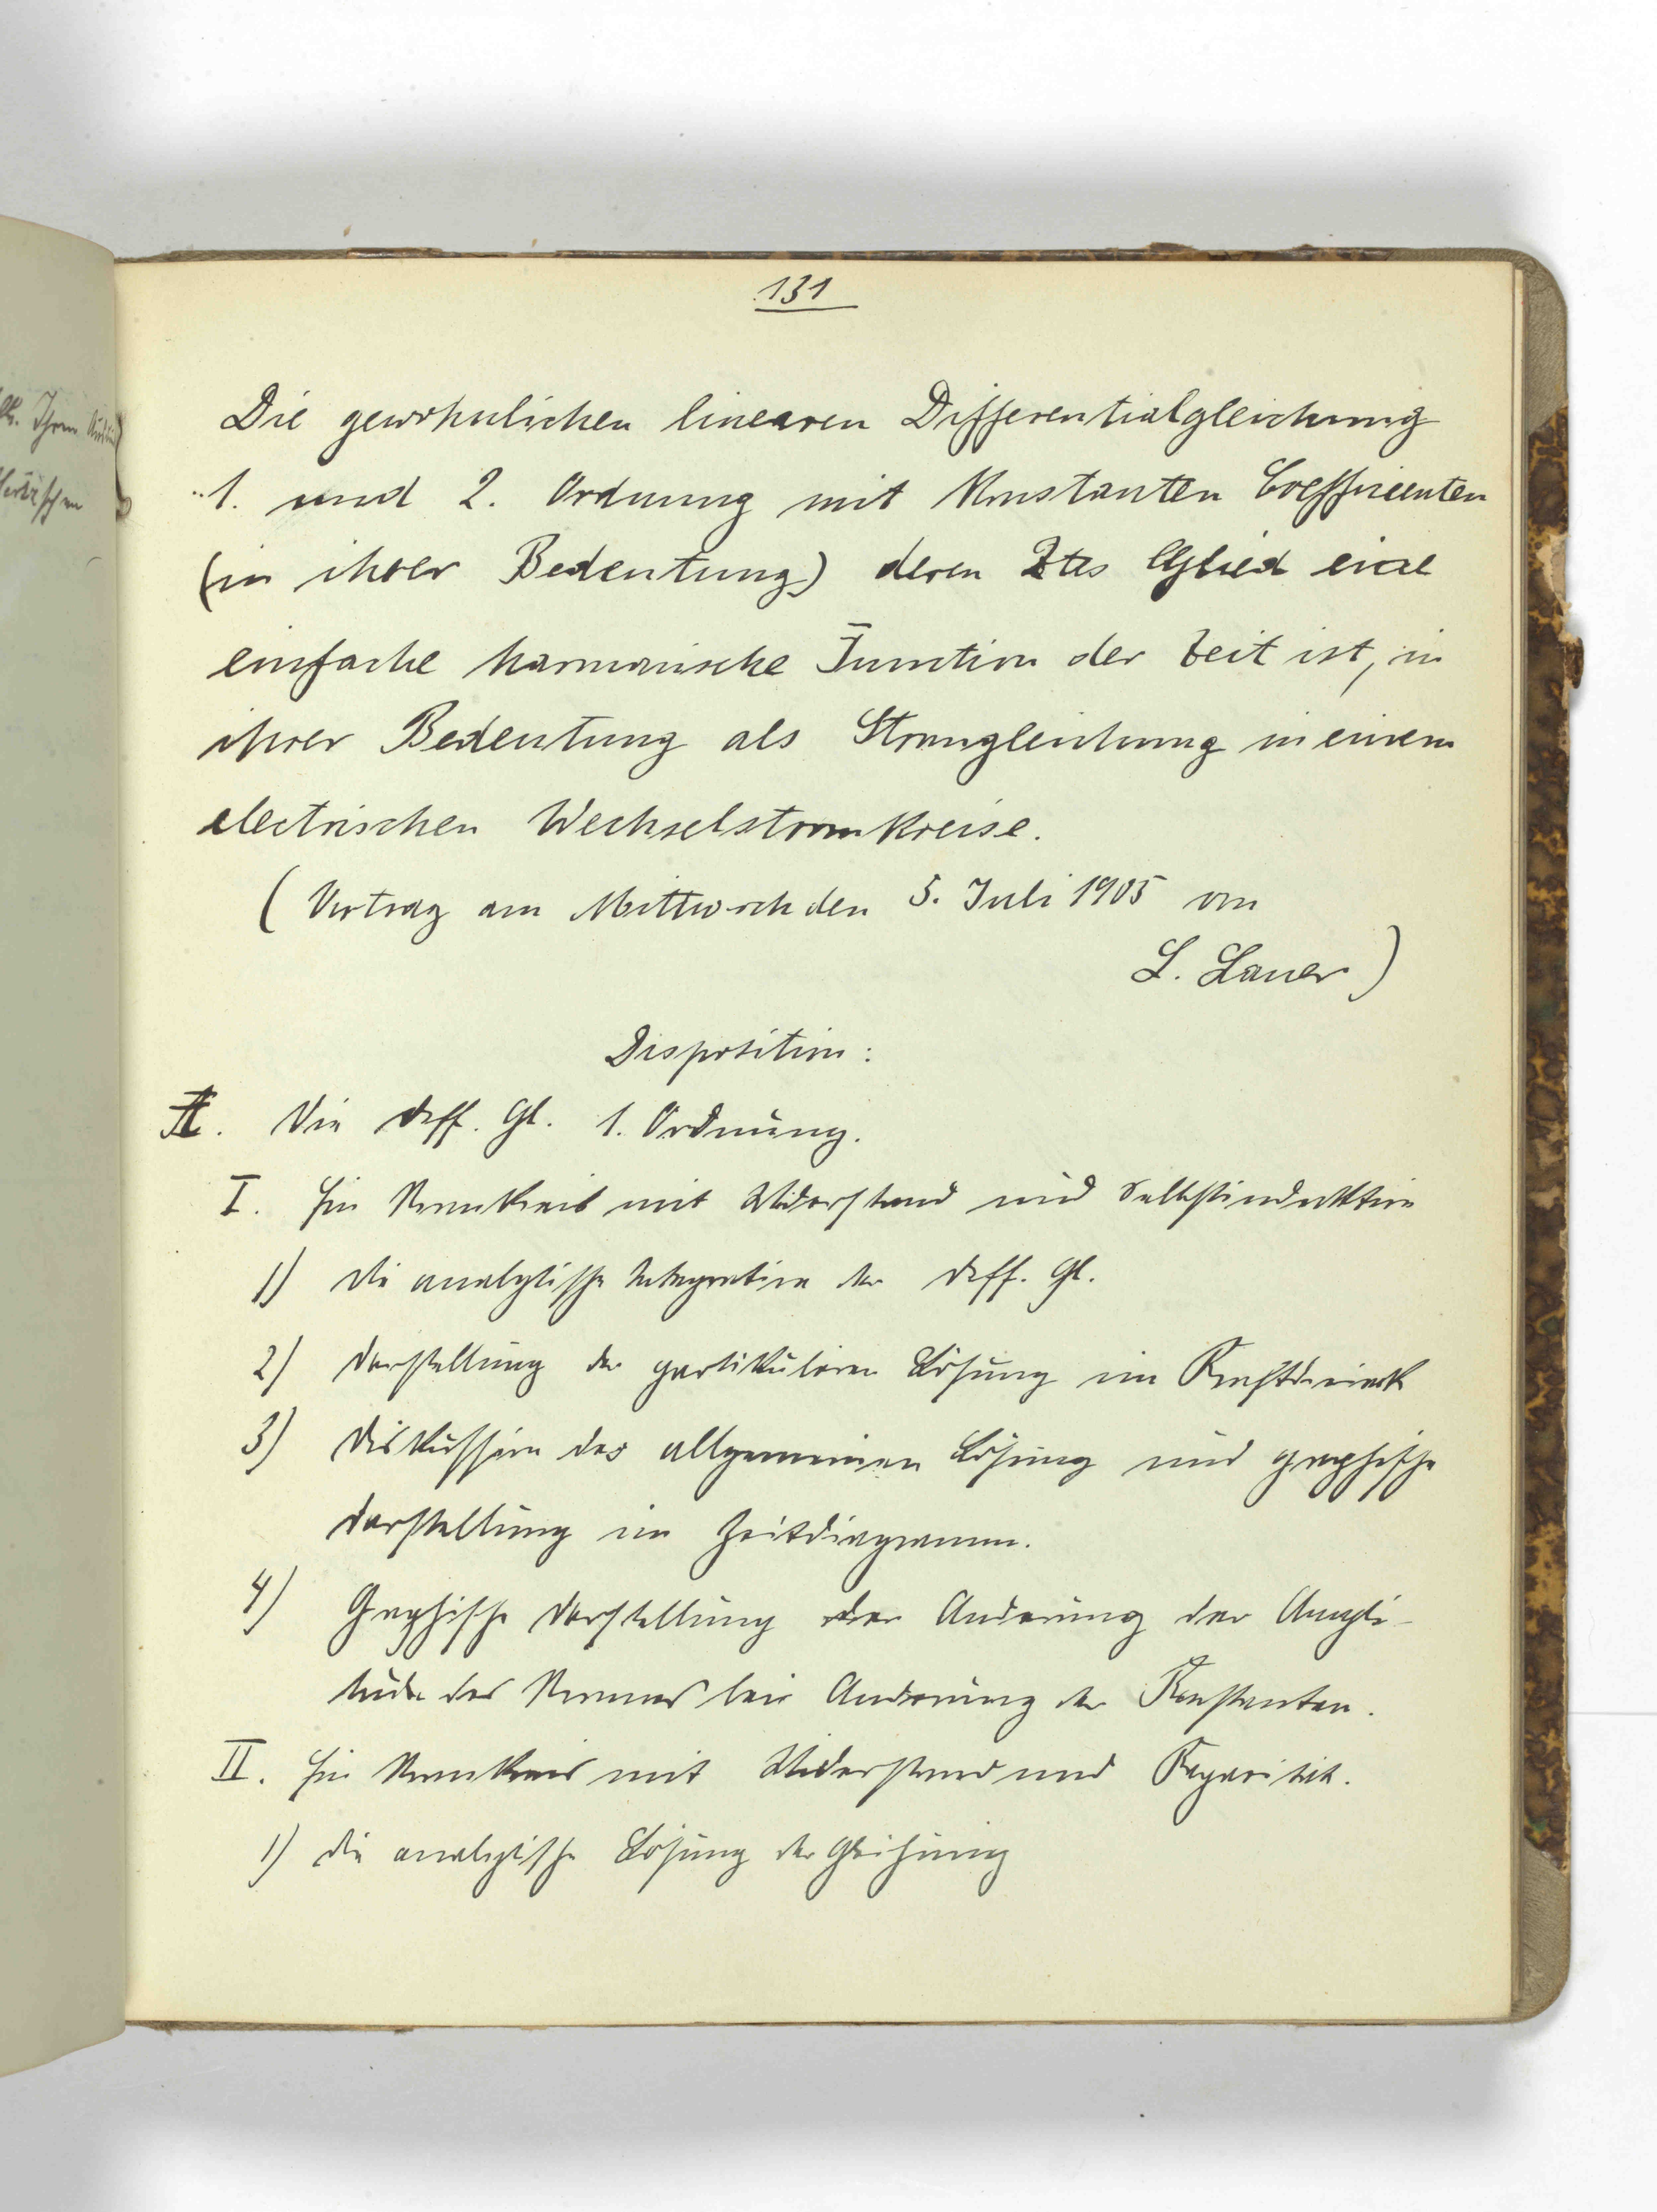 131
Die gewöhnlichen linearen Differentialgleichung
1. und 2. Ordnung mit Konstanten Coefficienten
(in ihrer Bedeutung) deren 2tes Glied eine
einfache harmonische Function der Zeit ist, in
ihrer Bedeutung als Stromgleichung in einem
electrischen Wechselstromkreise.
(Vortrag am Mittwoch den 5. Juli 1905 von
L. Lauer)
Disposition:
A. Die Diff. Gl. 1. Ordnung.
I. Ein Stromkreis mit Widerstand und Selbstinduktion
1) die analytische Integration der Diff. Gl.
2) Darstellung der partikulären Lösung im
3) Diskussion der allgemeinen Lösung und graphische
Darstellung im Zeitdiagramm.
4) Graphische Darstellung der Änderung der Ampli-
tude des Stromes bei Änderung der Konstanten.
II. Ein Stromkreis mit Widerstand und Kapacität.
1) die analytische Lösung der Gleichung